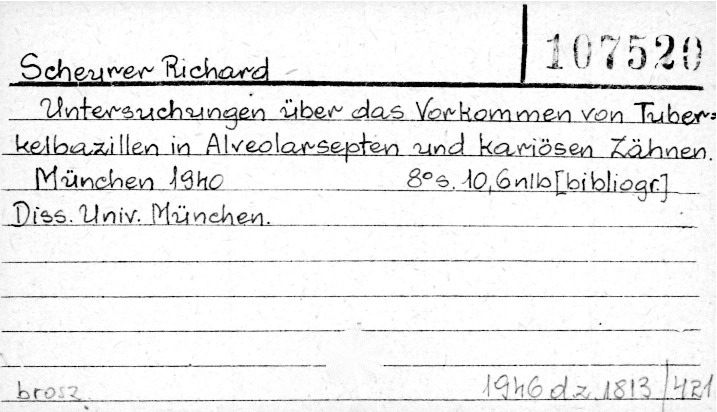 107520
Scheurer Richard
Untersuchungen über das Vorkommen von Tuber=
kelbazillen in Alveolarsepten und kariösen Zähnen.
München 1940 8° s. 10,6 nlb [bibliogr.]
Diss. Univ. München.
brosz. 1946 dz. 1813/421